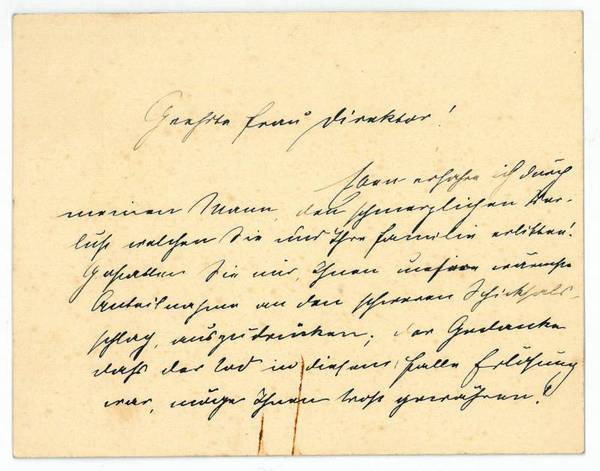 Geehrte Frau Direktor!
Eben erfahre ich durch
meinen Mann, den schmerzlichen Ver-
lust welchen Sie und Ihre Familie erlitten!
Gestatten Sie mir, Ihnen unsere wärmste
Anteilnahme an den schweren Schicksals-
schlag, auszudrücken; der Gedanke
dass der Tod in diesem Falle Erlösung
war, möge Ihnen Trost gewähren!